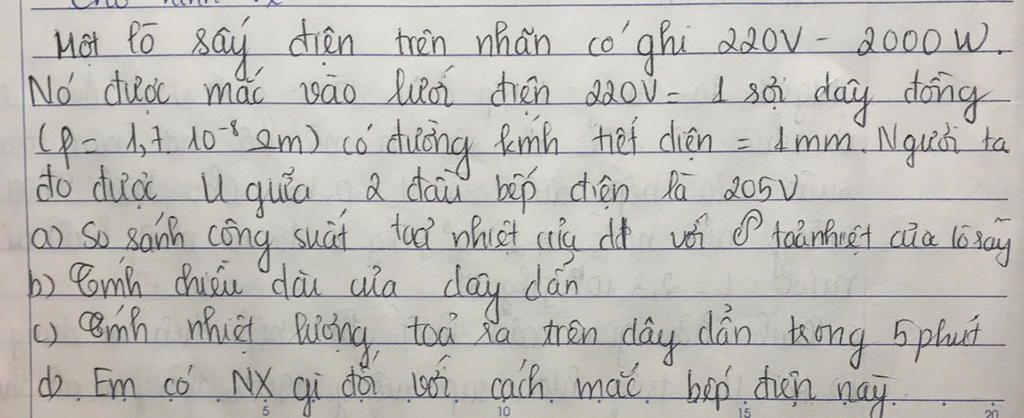 Một lò sấy điện trên nhãn có ghi 220V - 2000W.
Nó được mắc vào lưới điện 220V = 1 sợi dây đồng
(ρ = 1,7.10⁻⁸ Ωm) có đường kính tiết diện = 1mm. Người ta
đo được U giữa 2 đầu bếp điện là 205V
a) So sánh công suất toả nhiệt của dd với P toả nhiệt của lò sấy
b) Tính chiều dài của dây dẫn
c) Tính nhiệt lượng toả ra trên dây dẫn trong 5 phút
d) Em có NX gì đối với cách mắc bếp điện này
5 10 15 20